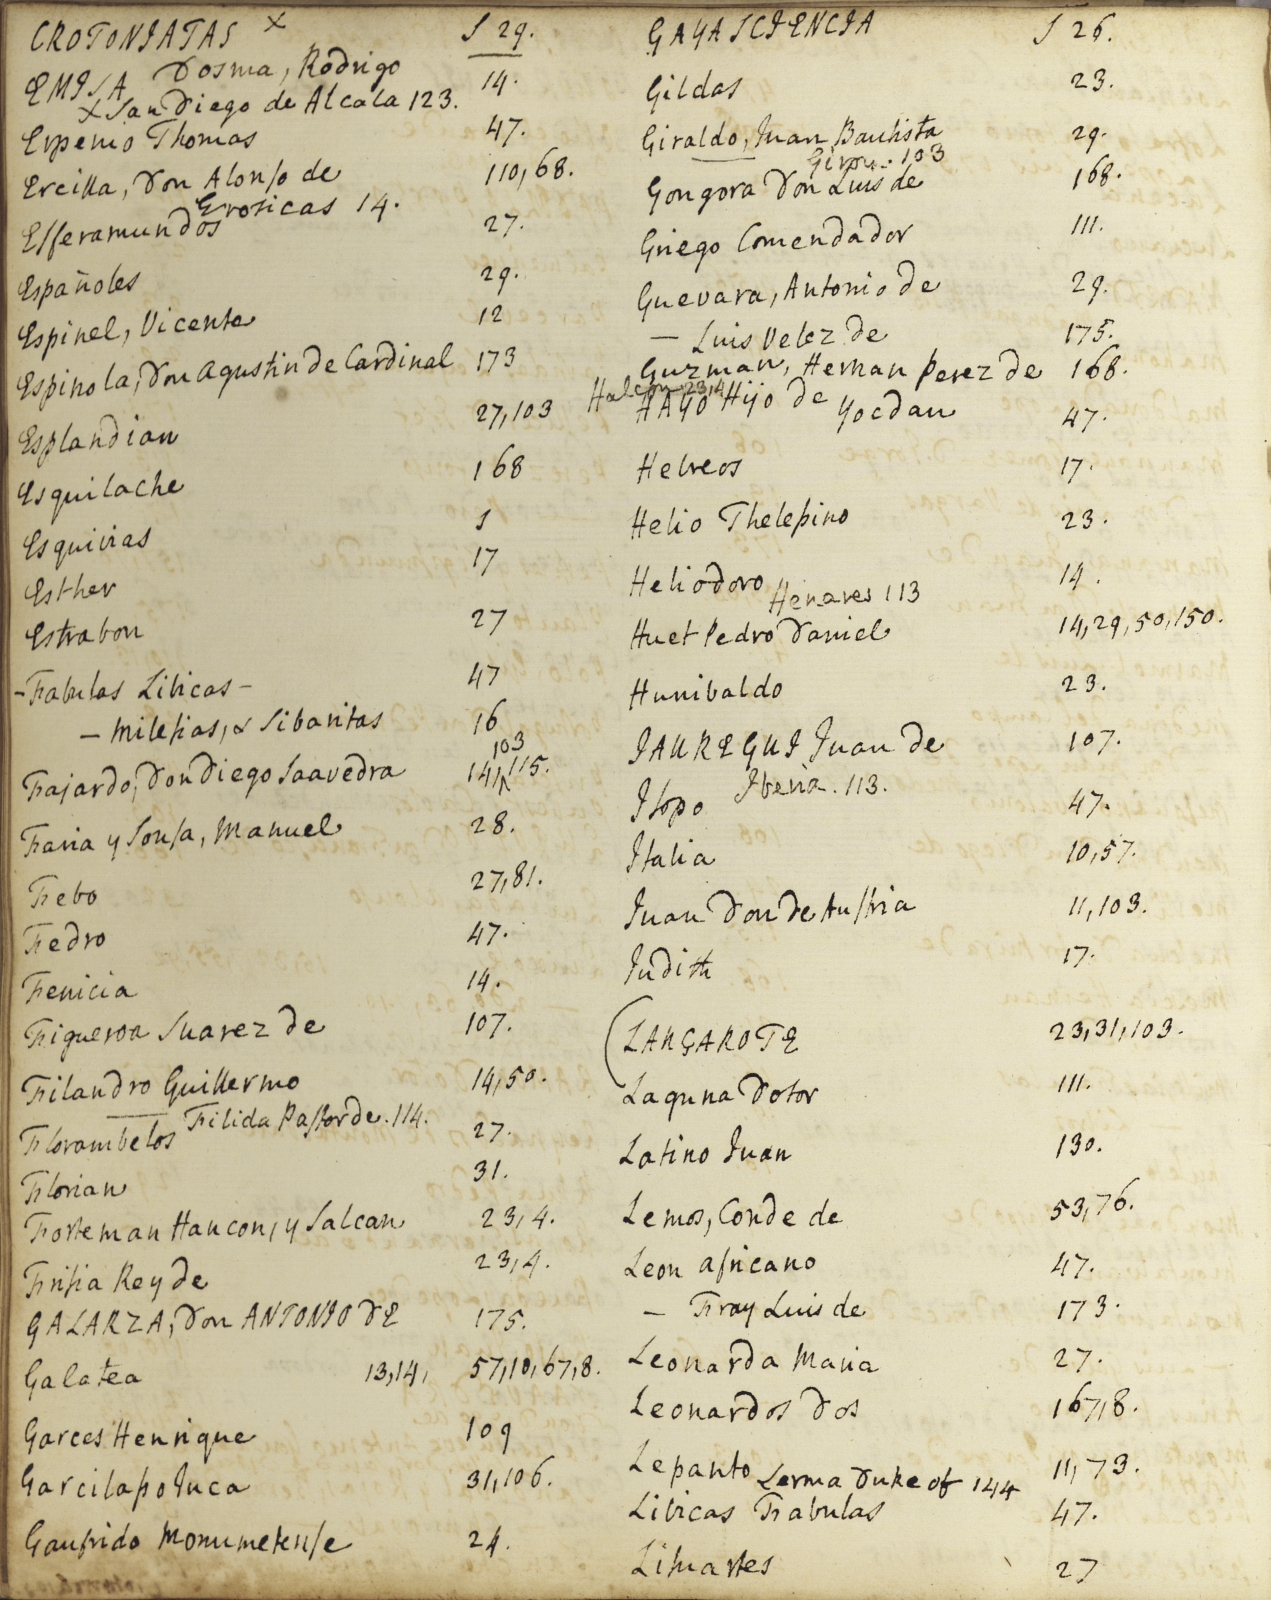 CROTONIATAS x S 29.
EMISA Dosma, Rodrigo 14.
x San Diego de Alcala 123.
Erpenio Thomas 47.
Ercilla, Don Alonso de 110, 68.
Eroticas 14.
Esferamundos 27.
Españoles 29.
Espinel, Vicente 12
Espinola, Don Agustin de Cardinal 173
Esplandian 27, 103
Esquilache 168
Esquivias 1
Esther 17
Estrabon 27
- Fabulas Libicas - 47
- Milesias, & Sibaritas 16
103
Fajardo, Don Diego Saavedra 14, 115.
Faria y Sousa, Manuel 28.
Febo 27, 81.
Fedro 47.
Fenicia 14.
Figueroa Suarez de 107.
Filandro Guillermo 14, 50.
Filida Pastor de. 114.
Florambelos 27.
Florian 31.
Forteman Haucon, y Salcan 23, 4.
Frisia Rey de 23, 4.
GALARZA, Don ANTONIO DE 175.
Galatea 13, 14, 57, 10, 67, 8.
Garces Henrique 109
Garcilasso Inca 31, 106.
Gaufrido Monumetense 24.
GAYA SCIENCIA S 26.
Gildas 23.
Giraldo, Juan Bautista 29.
103
Gongora Don Luis de 168.
Griego Comendador 111.
Guevara, Antonio de 29.
- Luis Velez de 175.
Guzman, Hernan Perez de 168.
Halcon 23, 4
HAGO Hijo de Yocdan 47.
Hebreos 17.
Helio Thelesino 23.
Heliodoro 14.
Henares 113
Huet Pedro Daniel 14, 29, 50, 150.
Hunibaldo 23.
IAUREGUI Juan de 107.
Iberia. 113.
Isopo 47.
Italia 10, 57.
Juan Don de Austria 11, 103.
Judith 17.
LANÇAROTE 23, 31, 103.
Laguna Dotor 111.
Latino Juan 130.
Lemos, Conde de 53, 76.
Leon africano 47.
- Fray Luis de 173.
Leonarda Maria 27.
Leonardos Dos 167, 8.
Lepanto 11, 73.
Lerma Duke of 144
Libicas Fabulas 47.
Lisuartes 27